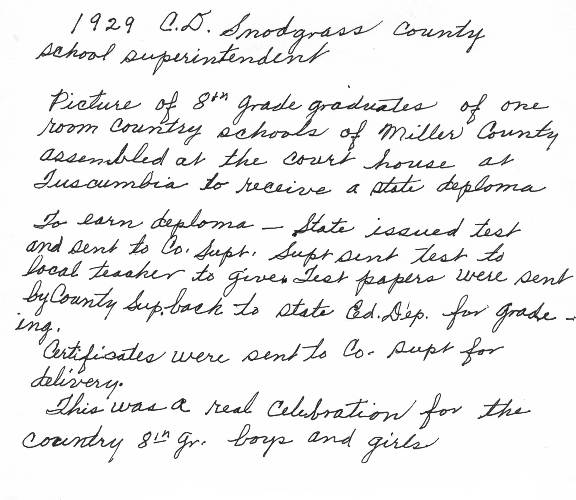 1929 C.D. Snodgrass County
school superintendent
Picture of 8th grade graduates of one
room country schools of Miller County
assembled at the court house at
Tuscumbia to receive a state deploma
To earn deploma – State issued test
and sent to Co. Supt. Supt sent test to
local teacher to give. Test papers were sent
by County Sup. back to state Ed. Dep. for grade -
ing.
Certificates were sent to Co. supt for
delivery.
This was a real Celebration for the
country 8th gr. boys and girls